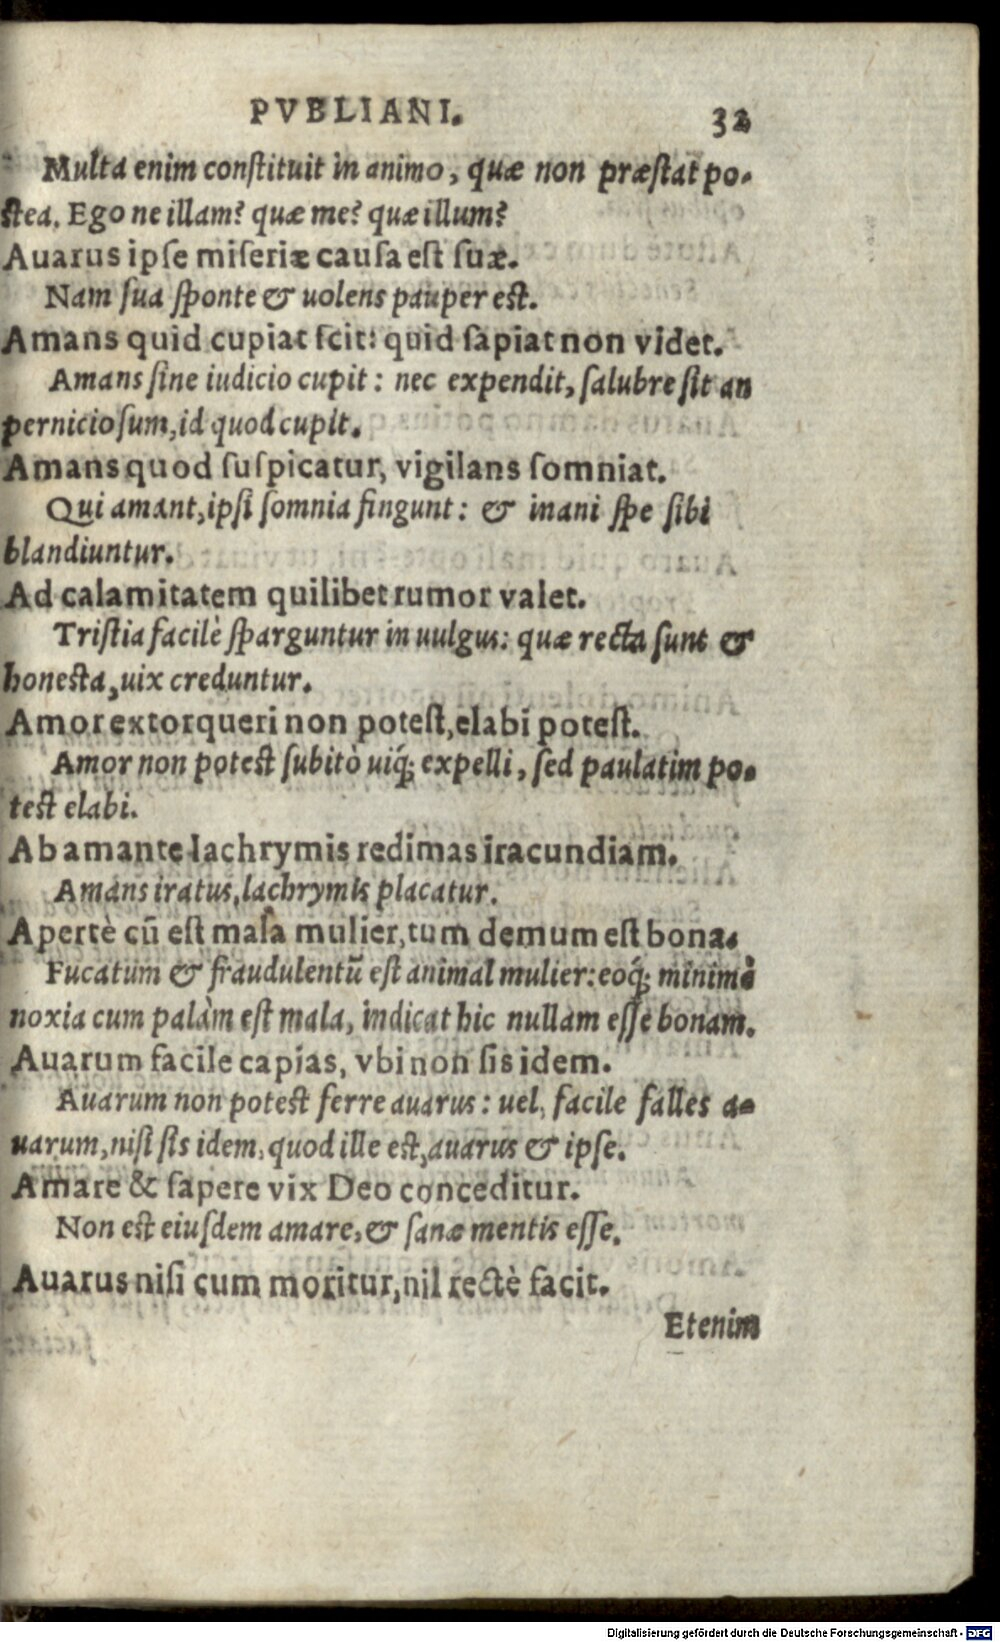 PVBLIANI. 32
Multa enim conſtituit in animo, quæ non præſtat po-
ſtea. Ego ne illam? quæ me? quæ illum?
Auarus ipſe miſeriæ cauſa eſt ſuæ.
Nam ſua ſponte & uolens pauper eſt.
Amans quid cupiat ſcit: quid ſapiat non videt.
Amans ſine iudicio cupit: nec expendit, ſalubre ſit an
pernicioſum, id quod cupit.
Amans quod ſuſpicatur, vigilans ſomniat.
Qui amant, ipſi ſomnia fingunt: & inani ſpe ſibi
blandiuntur.
Ad calamitatem quilibet rumor valet.
Triſtia facilè ſparguntur in uulgus: quæ recta ſunt &
honeſta, uix creduntur.
Amor extorqueri non poteſt, elabi poteſt.
Amor non poteſt ſubitò uiq́; expelli, ſed paulatim po-
teſt elabi.
Ab amante lachrymis redimas iracundiam.
Amans iratus, lachrymis placatur.
Apertè cū eſt mala mulier, tum demum eſt bona.
Fucatum & fraudulentū eſt animal mulier: eoq́; minimè
noxia cum palàm eſt mala, indicat hic nullam eſſe bonam.
Auarum facile capias, vbi non ſis idem.
Auarum non poteſt ferre auarus: uel, facile falles a-
uarum, niſi ſis idem, quod ille eſt, auarus & ipſe.
Amare & ſapere vix Deo conceditur.
Non eſt eiuſdem amare, & ſanæ mentis eſſe.
Auarus niſi cum moritur, nil rectè facit.
Etenim
Digitalisierung gefördert durch die Deutsche Forschungsgemeinschaft - DFG